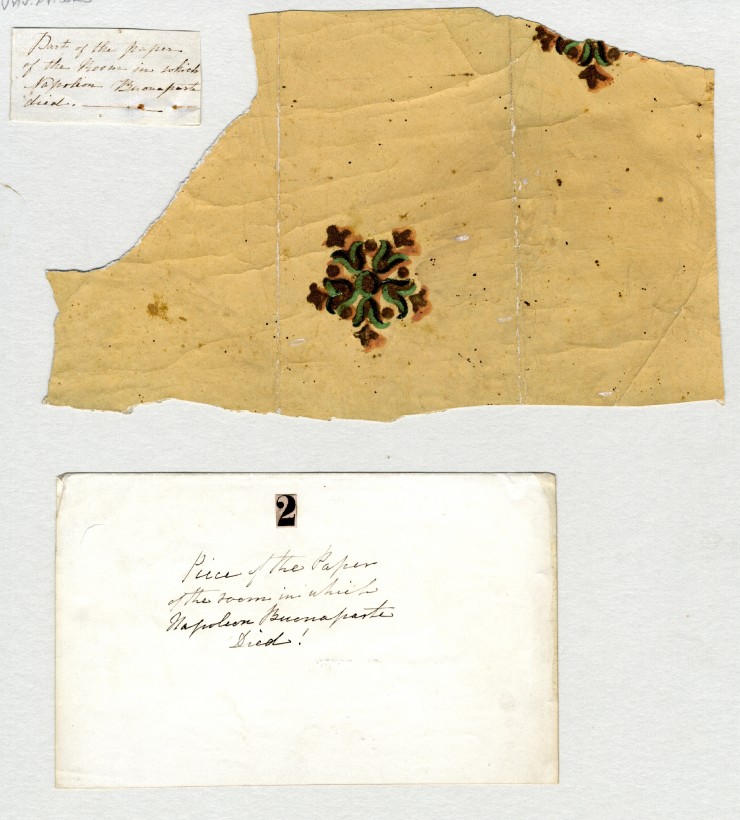 Part of the paper
of the Room in which
Napoleon Buonaparte
died.
2
Piece of the Paper
of the room in which
Napoleon Buonaparte
Died!